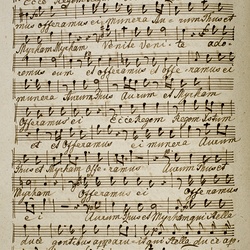 Ecce Regem
mus offeramus ei munera Aurum Thus et
Myrham Myrham Venite Veni - te ado-
remus eum et offeramus et offe-ramus ei
munera Aurum Thus Aurum et Myrham
Offeramus ei Ecce Regem Regem
et et Offeramus ei munera Aurum
Thus et Myrham offe-ramus Aurum Thus et
Myrham Offeramus ei Offeramus
ei Aurum Thus et Myrham qui stella
duce gentibus apparuisti qui stella duce